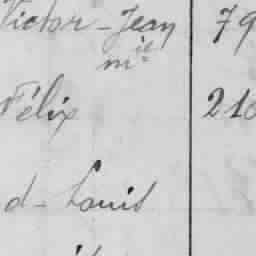 Victor-Jean 79
mie
Félix 210
d-Louis